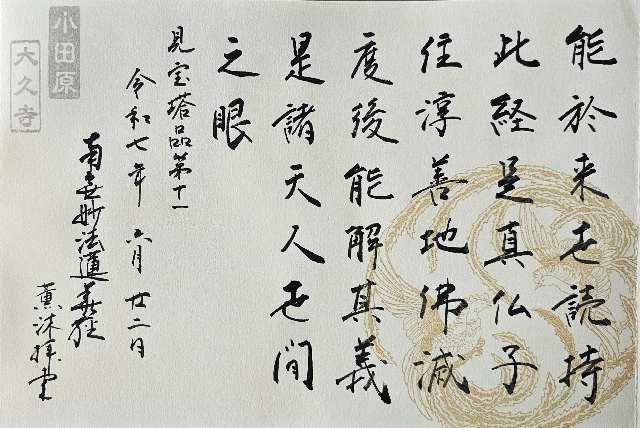 能於来世読持
此経是真仏子
住淳善地佛滅
度後能解其義
是諸天人世間
之眼
見宝塔品第十一
令和七年 六月 廿二日
南無妙法蓮華経
薫沐拝書
小田原
大久寺